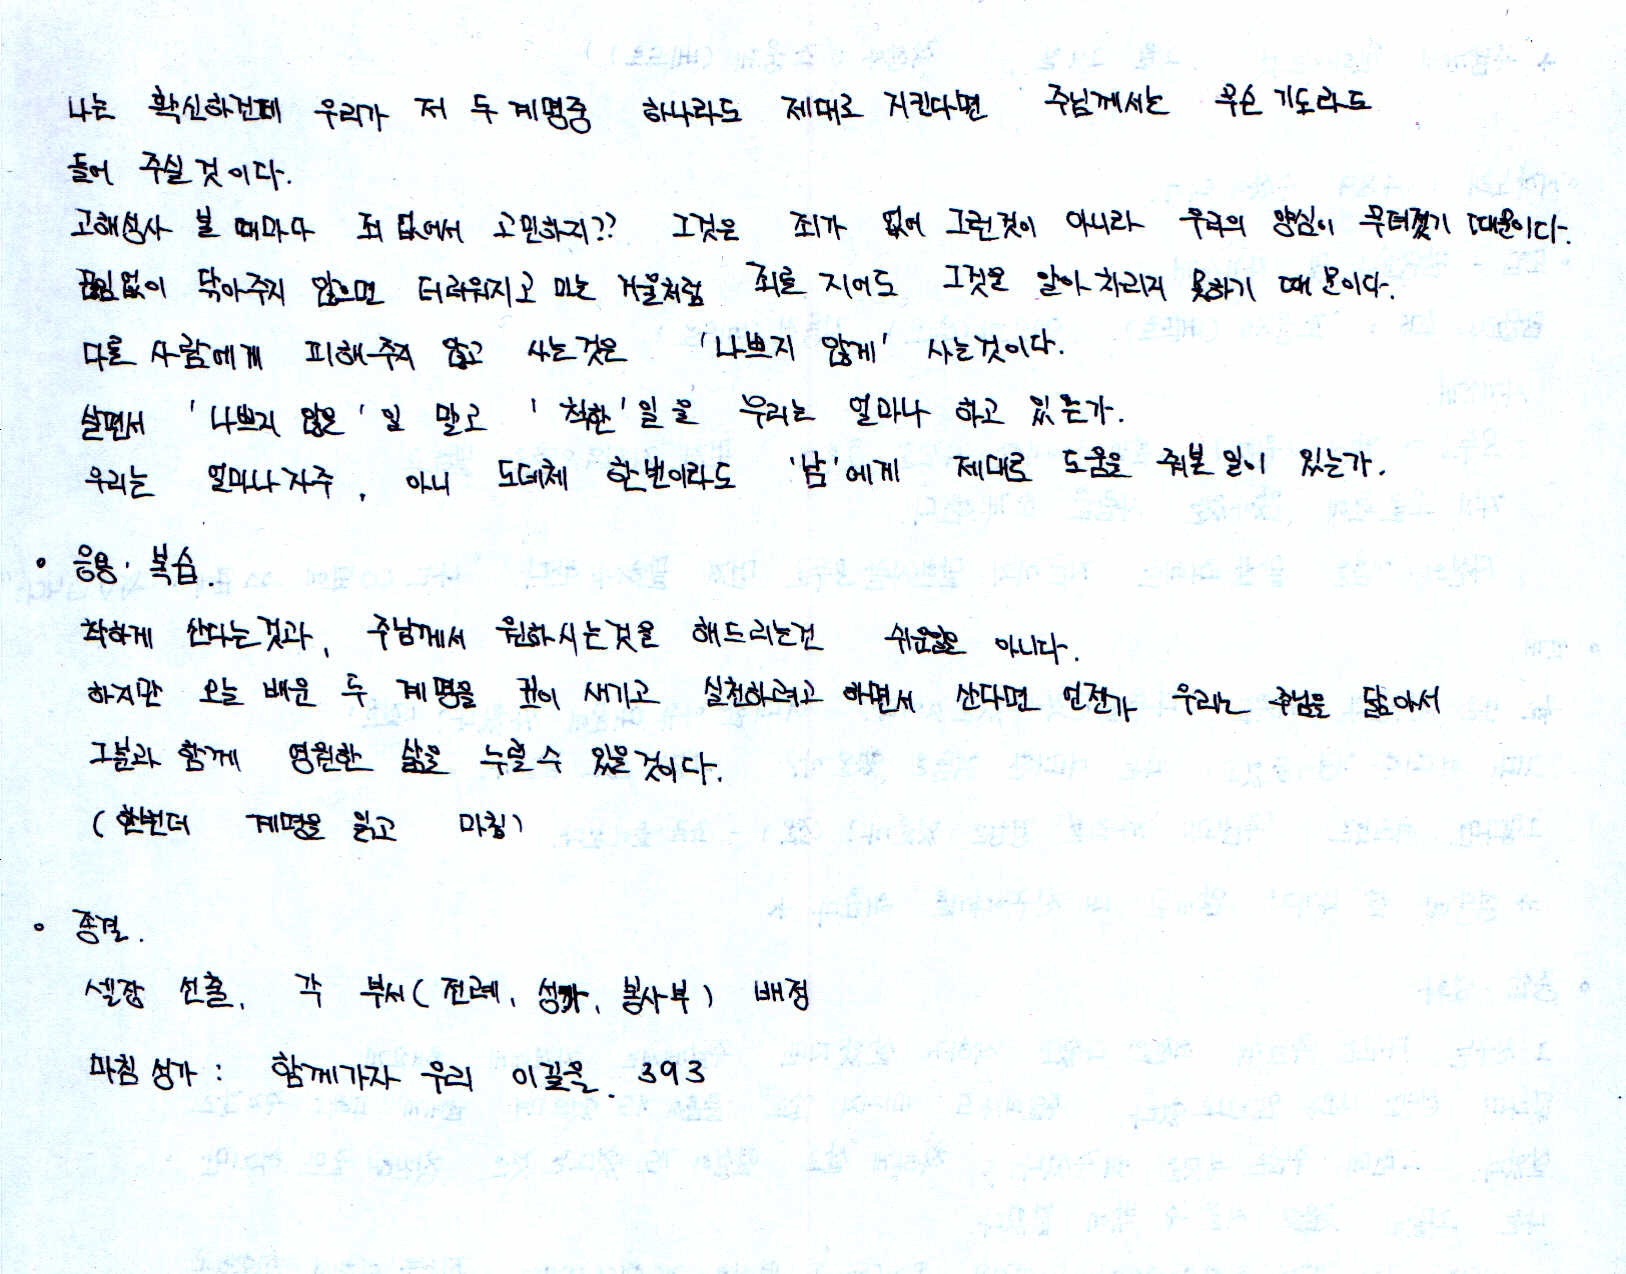 나는 확신하건데 우리가 저 두 계명중 하나라도 제대로 지킨다면 주님께서는 무슨 기도라도
들어 주실 것이다.
고해성사 볼 때마다 죄 없어서 고민하지?? 그것은 죄가 없어 그런것이 아니라 우리의 양심이 무뎌졌기 때문이다.
끊임없이 닦아주지 않으면 더러워지고 마는 거울처럼 죄를 지어도 그것을 알아 차리지 못하기 때문이다.
다른 사람에게 피해주지 않고 사는것은 '나쁘지 않게' 사는것이다.
살면서 '나쁘지 않은' 일 말고 '착한' 일을 우리는 얼마나 하고 있는가.
우리는 얼마나 자주, 아니 도데체 한번이라도 '남'에게 제대로 도움을 줘본 일이 있는가.
◦ 응용·복습.
착하게 산다는것과, 주님께서 원하시는것을 해드리는건 쉬운일은 아니다.
하지만 오늘 배운 두 계명을 깊이 새기고 실천하려고 하면서 산다면 언젠가 우리는 주님을 닮아서
그분과 함께 영원한 삶을 누릴수 있을것이다.
(한번더 계명을 읽고 마침)
◦ 종결.
셀장 선출, 각 부서(전례, 성가, 봉사부) 배정
마침성가 : 함께가자 우리 이길을. 393